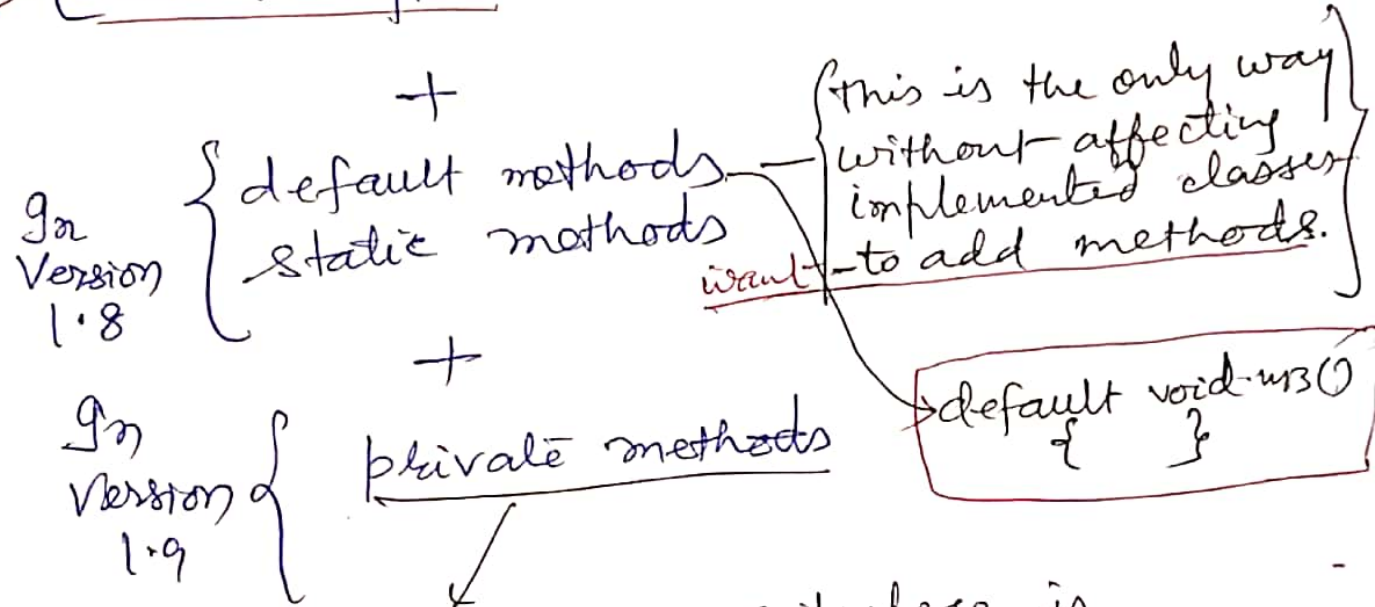 +
In Version 1.8 { default methods
static methods
{ this is the only way
without affecting
implemented classes
want - to add methods. }
default void m3()
{ }
+
In Version 1.9 { private methods
is